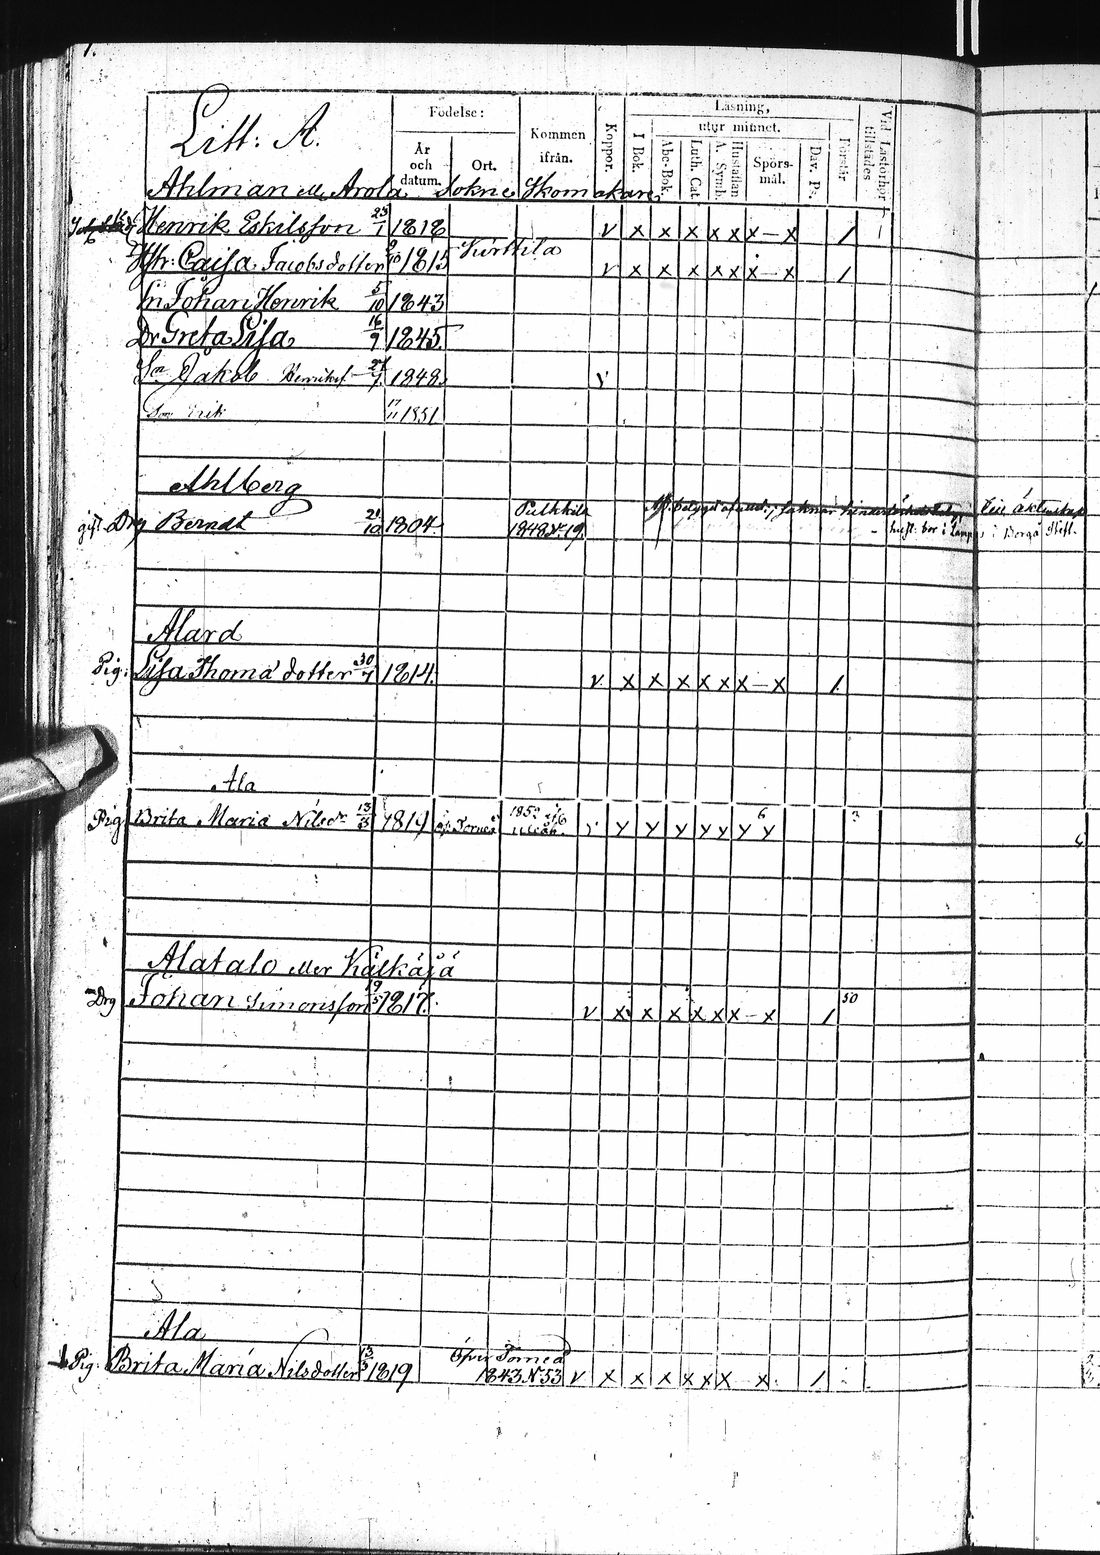 1.
Litt: A.
Födelse:
År och datum.
Ort.
Kommen ifrån.
Koppor.
Läsning,
I Bok.
utur minnet.
Abc-Bok.
Luth. Cat.
A. Symb.
Hustaflan
Spörsmål.
Dav. Ps.
Förstår
Vid Läsförhör tillstädes
Ahlman ell. Arola Sokne Skomakare
Henrik Eskilsson 23/1 1818 v x x x x x x – x 1
Hstr: Caisa Jacobsdotter 9/10 1815 v x x x x x x – x 1
Sn Johan Henrik 5/10 1843
Dr Greta Lisa 16/9 1845
Sn Jakob Henriksf. 27/7 1848
Son Erik 17/11 1851
Ahlberg
gift Drg Berndt 21/10 1804 Pulkkila 1848 N 19.
bor i
i Borgå Stift.
Alard
Pig: Lisa Thomä dotter 30/7 1814. v x x x x x x – x 1.
Ala
Pig: Brita Maria Nilsdr 13/3 1819 öf. Torneå 1852 y y y y y y y y 6 3
Alatalo eller Kälkäjä
Drg Johan Simonsson 19/5 1817. v x x x x x x – x 1 50
Ala
Pig: Brita Maria Nilsdotter 13/3 1819 Öfver Torneå 1843 N 53 v x x x x x x – x 1